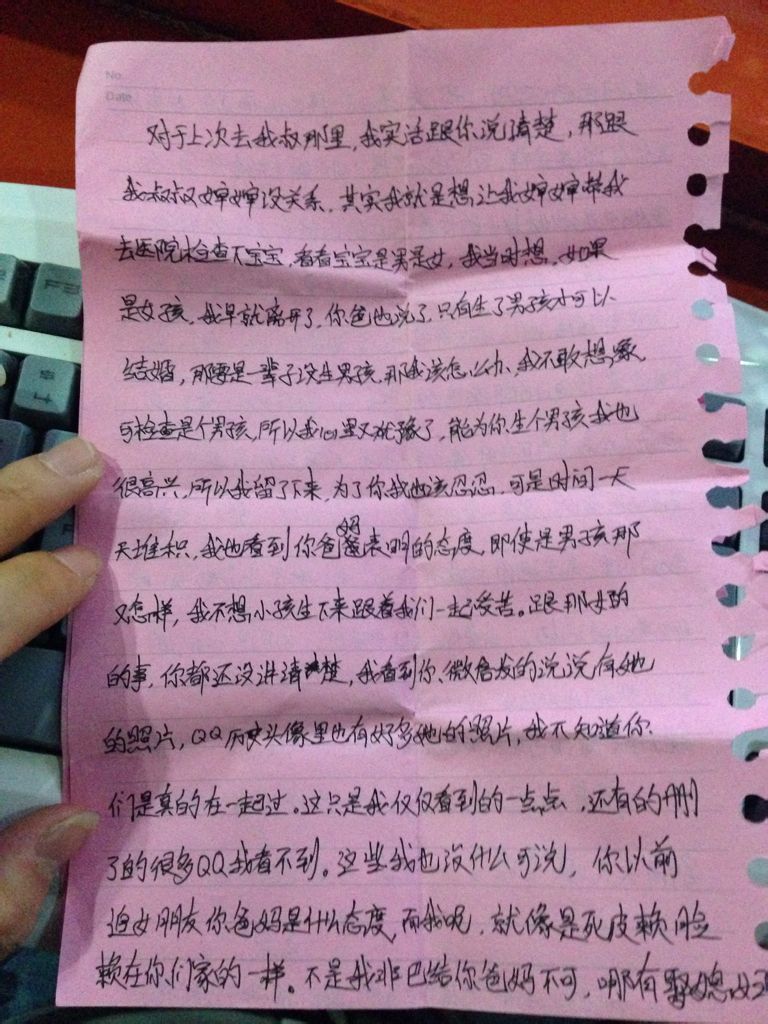 No.
Date
对于上次去我叔那里，我实话跟你说清楚，那跟
我叔叔婶婶没关系，其实我就是想让我婶婶带我
去医院检查下宝宝，看看宝宝是男是女，我当时想，如果
是女孩，我早就离开了，你爸也说了，只有生了男孩才可以
结婚，那要是一辈子没生男孩，那我该怎么办，我不敢想象
可检查是个男孩，所以我心里又犹豫了，能为你生个男孩我也
很高兴，所以我留了下来，为了你我也该忍忍，可是时间一天
天堆积，我也看到你爸妈表明的态度，即使是男孩那
又怎样，我不想小孩生下来跟着我们一起受苦。跟那女的
的事，你都还没讲清楚，我看到你微信发的说说有她
的照片，QQ历史头像里也有好多她的照片，我不知道你
们是真的在一起过。这只是我仅仅看到的一点点，还有的删
了的很多QQ我看不到。这些我也没什么可说，你以前
追女朋友你爸妈是什么态度，而我呢，就像是死皮赖脸
赖在你们家的一样。不是我非巴给你爸妈不可，哪有